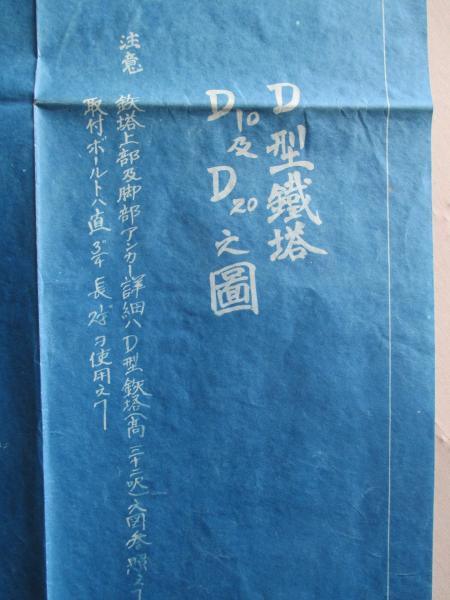 D型鐵塔
D10及D20之圖
注意 鉄塔上部及脚部アンカー詳細ハD型鉄塔(高 二十二呎)之図参照スヿ
取付ボールトハ直3/4" 長 ヲ使用スヿ